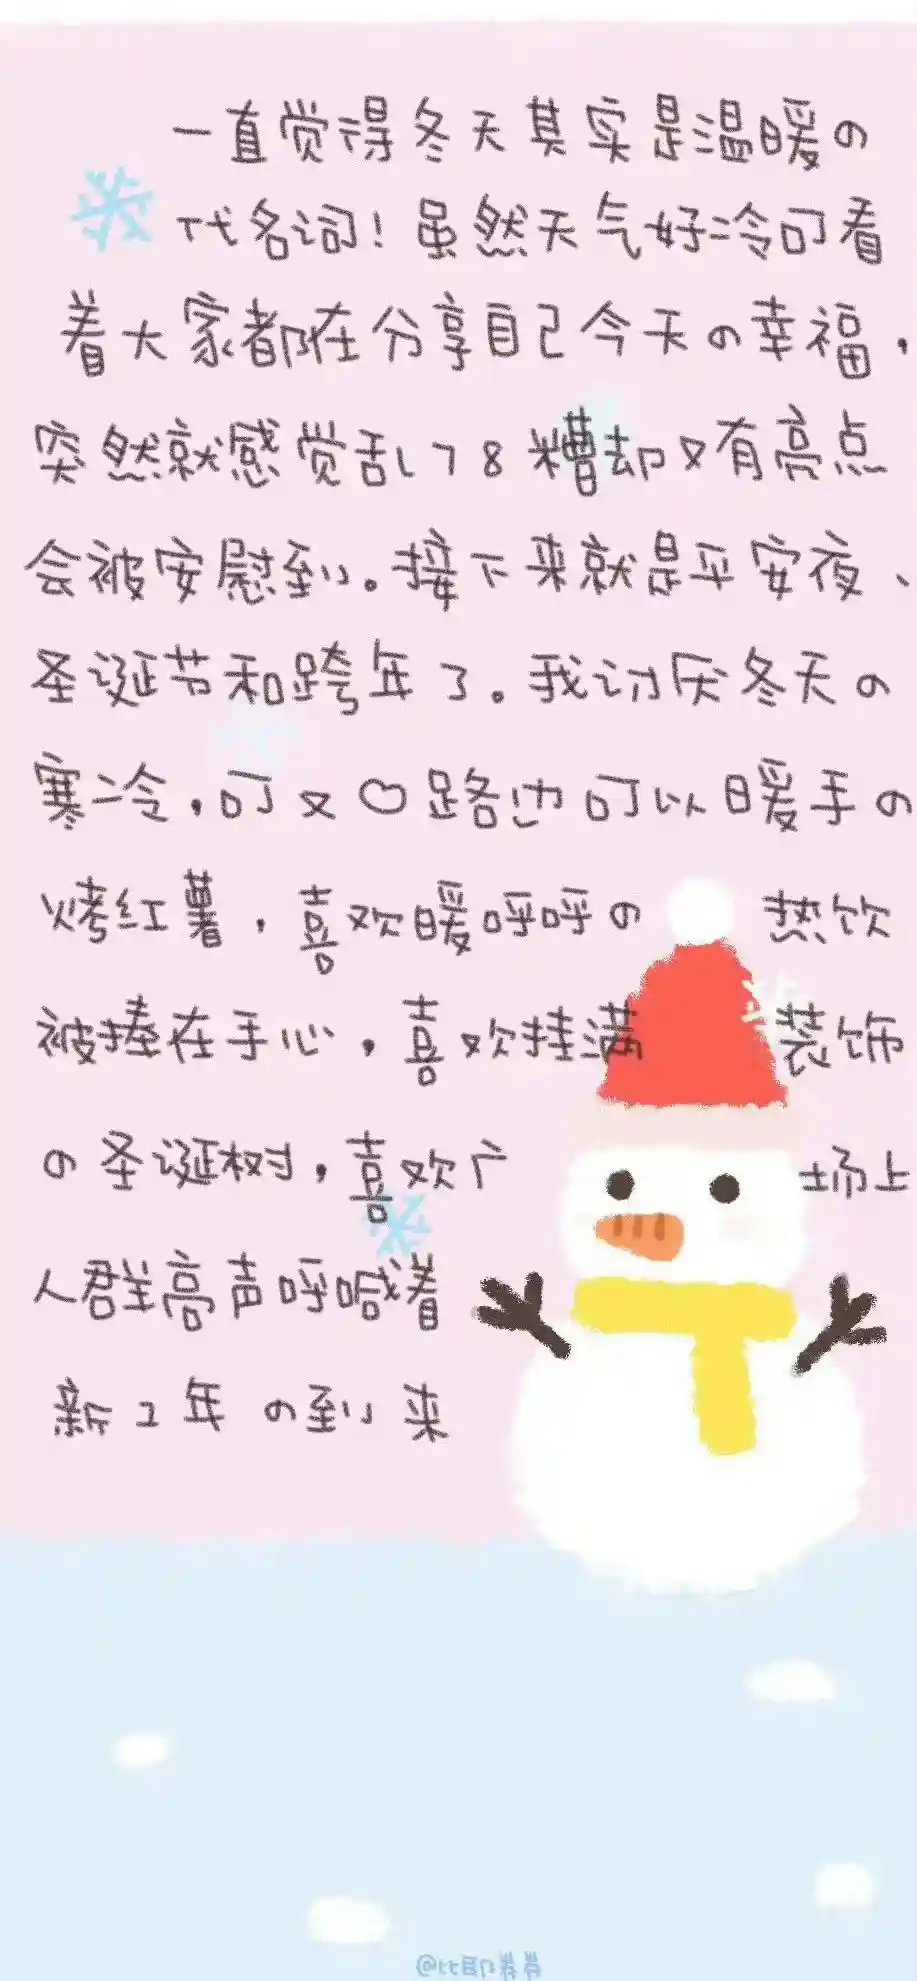 一直觉得冬天其实是温暖の
代名词！虽然天气好冷可看
着大家都在分享自己今天の幸福，
突然就感觉乱78糟却又有亮点
会被安慰到。接下来就是平安夜、
圣诞节和跨年了。我讨厌冬天の
寒冷，可又♡路边可以暖手の
烤红薯，喜欢暖呼呼の热饮
被捧在手心，喜欢挂满装饰
の圣诞树，喜欢广场上
人群高声呼喊着
新1年の到来